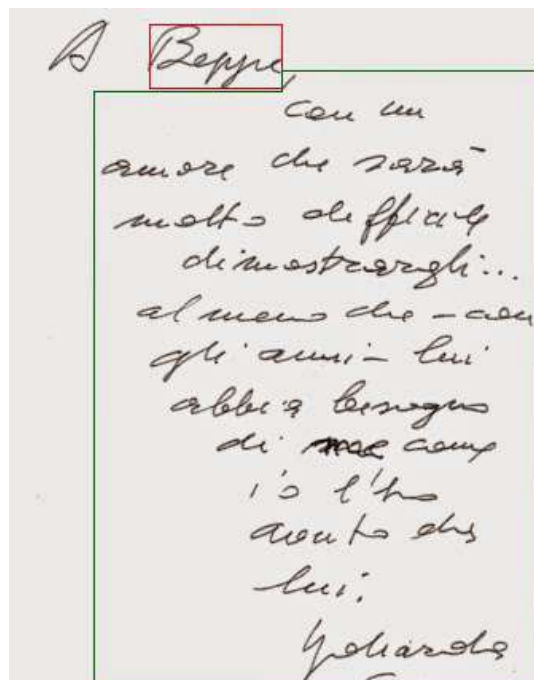 A Beppe,
con un
amore che sarà
molto difficile
dimostrargli...
al meno che - con
gli anni - lui
abbia bisogno
di me come
io l'ho
avuto di
lui.